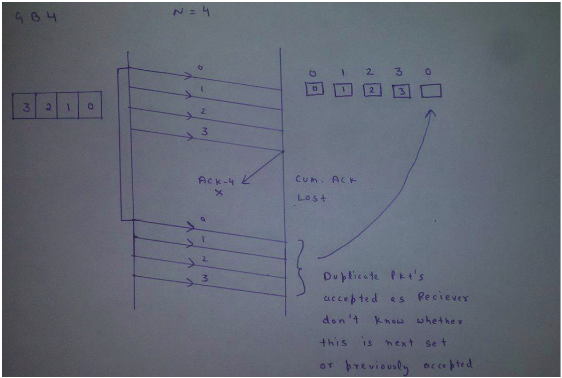 GB4
N = 4
0
1
2
3
3 2 1 0
0 1 2 3 0
0 1 2 3
ACK-4
X
Cum. Ack
Lost
0
1
2
3
Duplicate Pkt's
accepted as Reciever
don't know whether
this is next set
or previously accepted